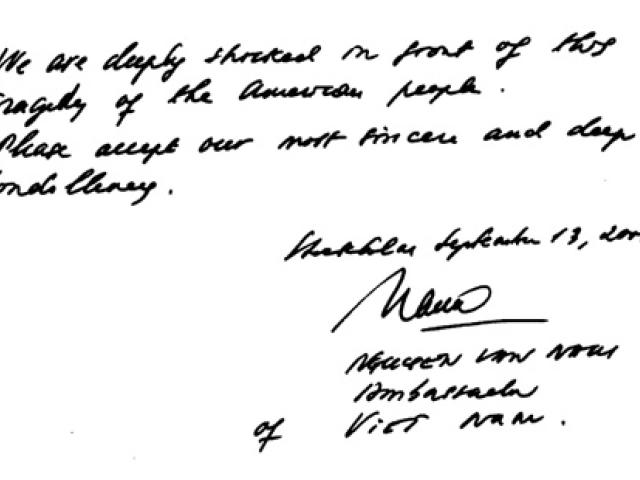 We are deeply shocked in front of this
tragedy of the American people.
Please accept our most sincere and deep
condollences.
Stockholm September 13, 200
Nam
NGUYEN VAN NAM
Ambassador
of VIET NAM.